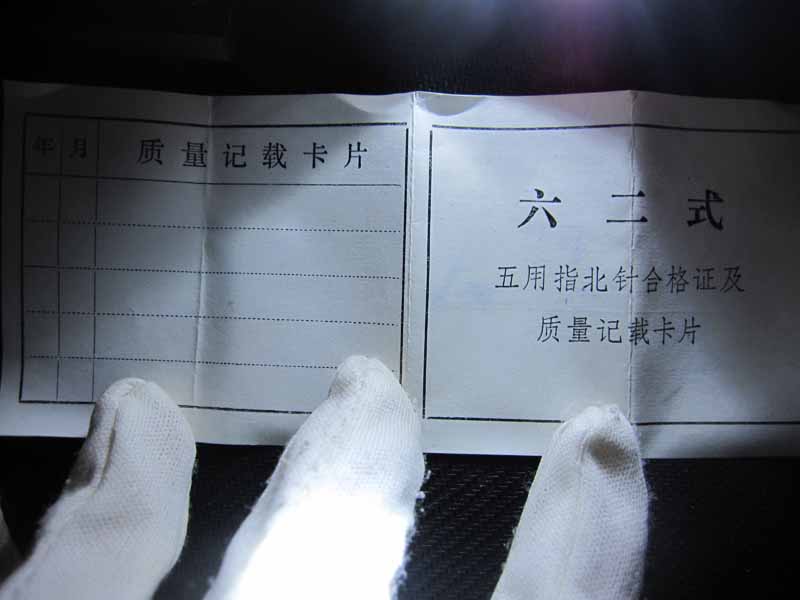 年 月 质量记载卡片
六二式
五用指北针合格证及
质量记载卡片